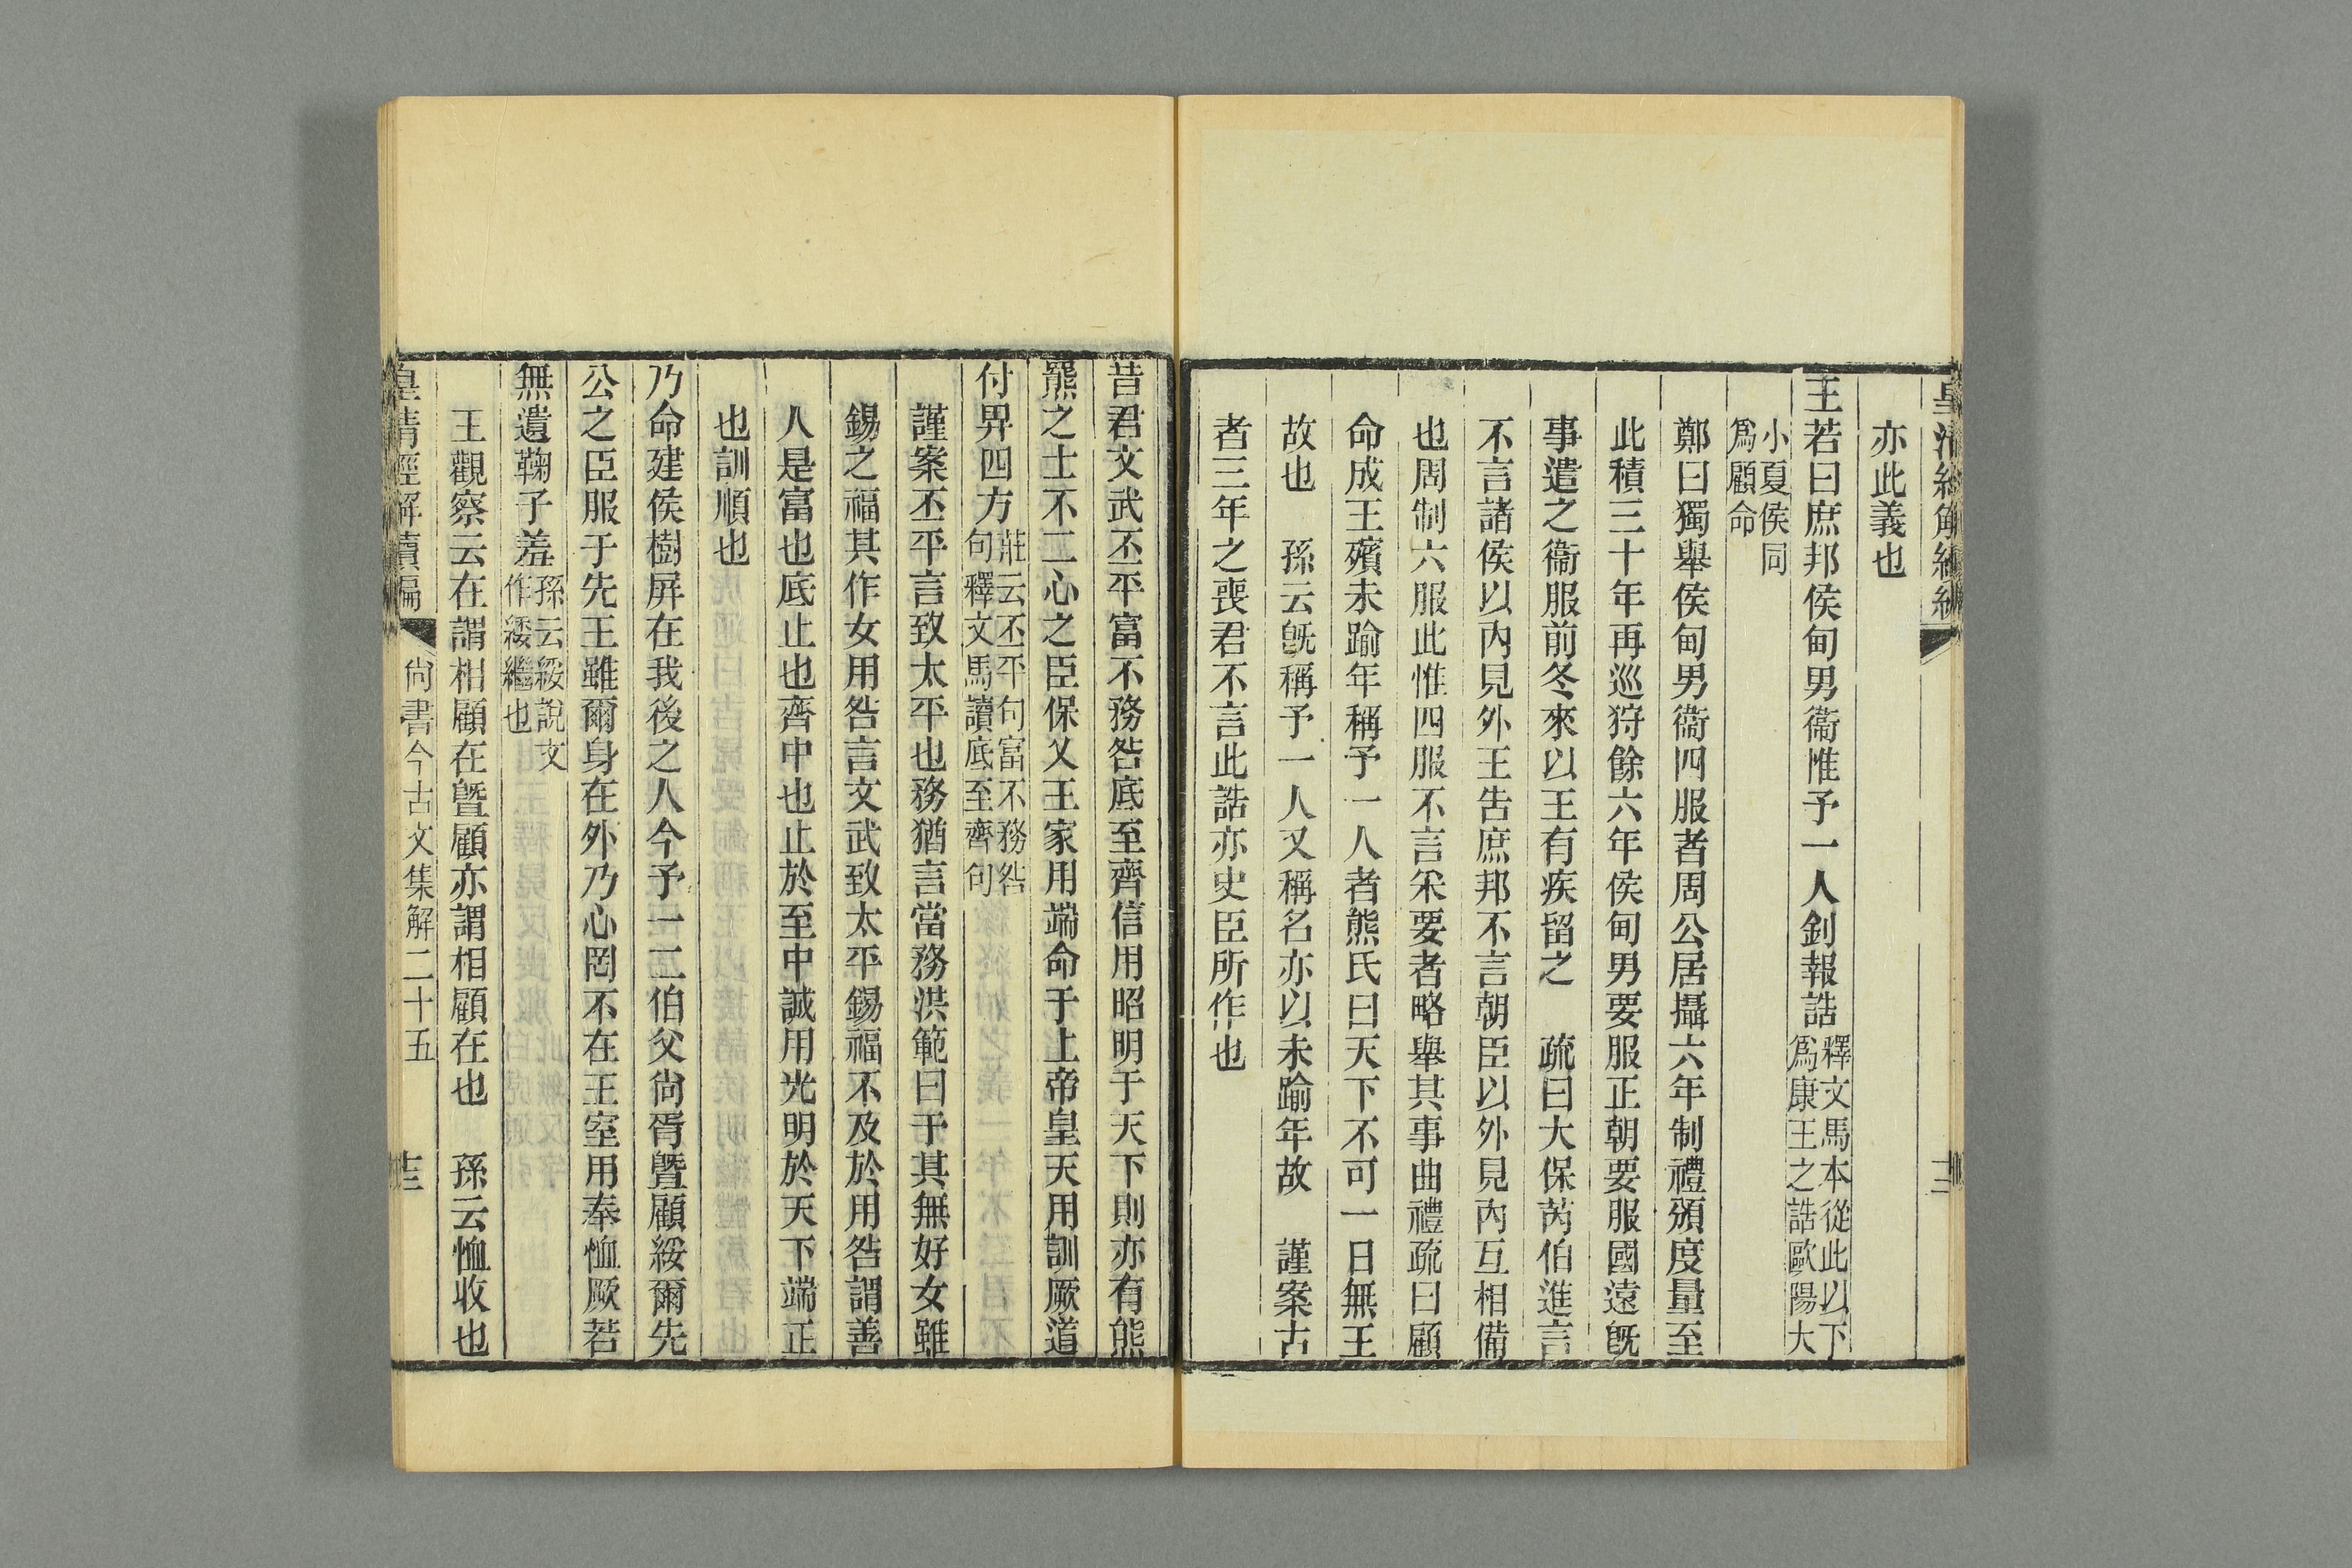 亦此義也
王若曰庶邦侯甸男衞惟予一人釗報誥釋文馬本從此以下
爲康王之誥歐陽大
小夏侯同
爲顧命
鄭曰獨舉侯甸男衞四服者周公居攝六年制禮頒度量至
此積三十年再巡狩餘六年侯甸男要服正朝要服國遠旣
事遣之衞服前冬來以王有疾留之　疏曰大保芮伯進言
不言諸侯以內見外王告庶邦不言朝臣以外見內互相備
也周制六服此惟四服不言釆要者略舉其事曲禮疏曰顧
命成王殯未踰年稱予一人者熊氏曰天下不可一日無王
故也　孫云旣稱予一人又稱名亦以未踰年故　謹案古
者三年之喪君不言此誥亦史臣所作也
昔君文武丕平富不務咎底至齊信用昭明于天下則亦有熊
羆之士不二心之臣保乂王家用端命于上帝皇天用訓厥道
付畀四方莊云丕平句富不務咎
句釋文馬讀底至齊句
謹案丕平言致太平也務猶言當務洪範曰于其無好女雖
錫之福其作女用咎言文武致太平錫福不及於用咎謂善
人是富也底止也齊中也止於至中誠用光明於天下端正
也訓順也
乃命建侯樹屏在我後之人今予一二伯父尙胥曁顧綏爾先
公之臣服于先王雖爾身在外乃心罔不在王室用奉恤厥若
無遺鞠子羞孫云綏說文
作緌繼也
王觀察云在謂相顧在曁顧亦謂相顧在也　孫云恤收也
皇淸經解續編
尙書今古文集解二十五
十三